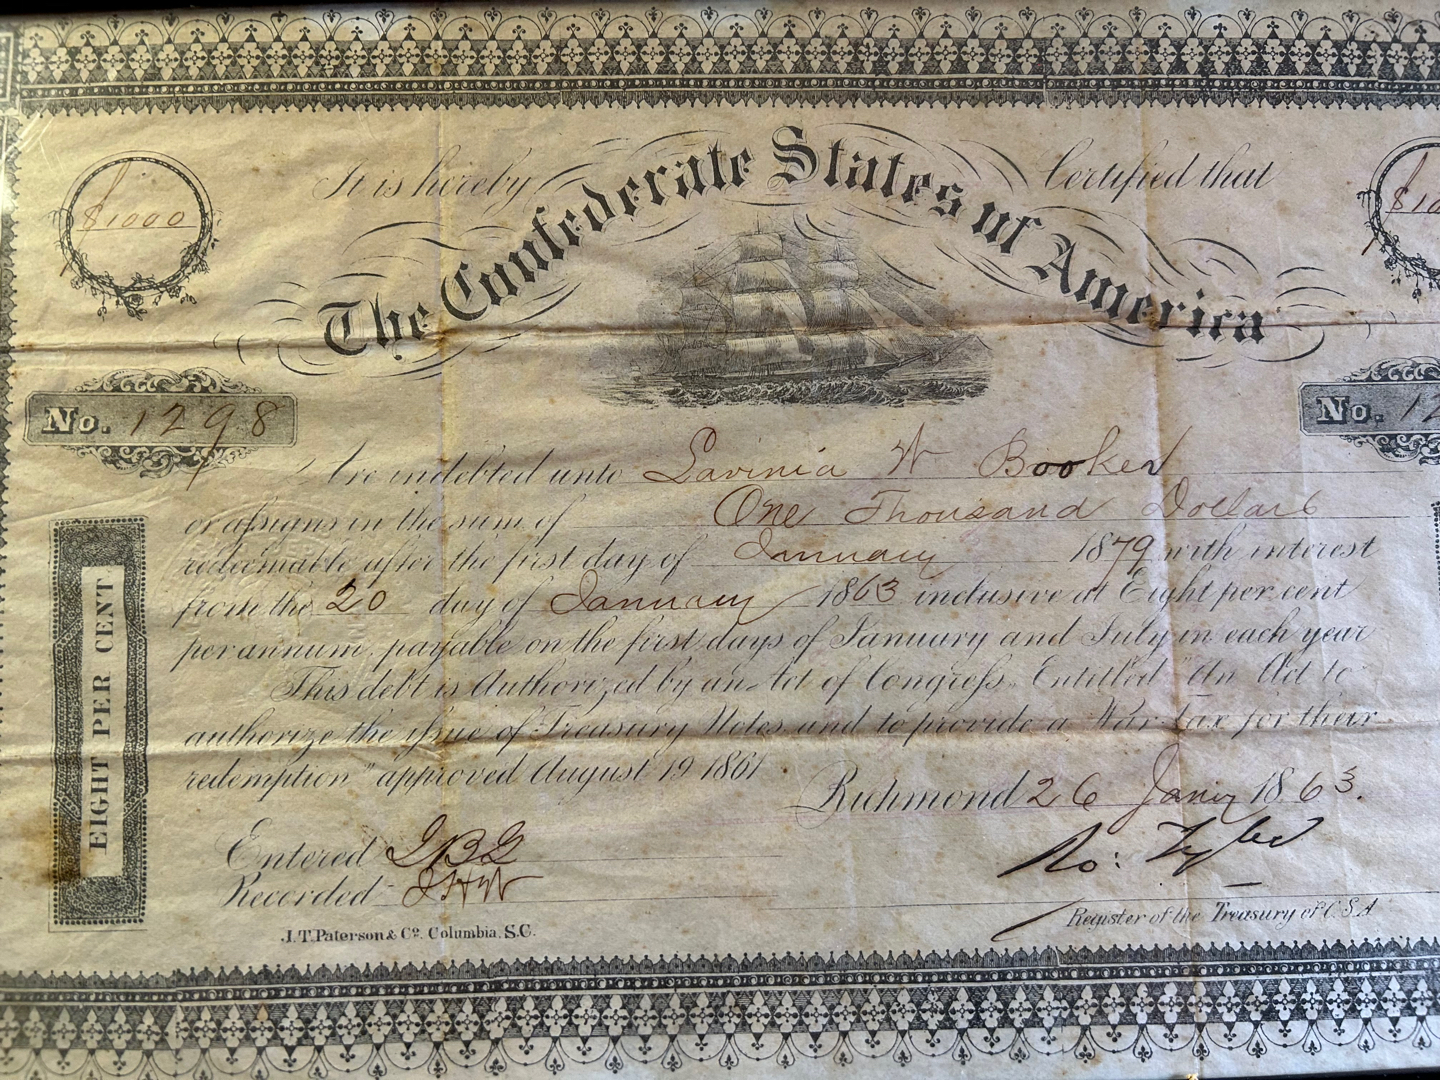 It is hereby Certified that
The Confederate States of America
$1000
$10
No. 1298
No. 12
Are indebted unto Lavinia W Booker
or assigns in the sum of One Thousand Dollars
redeemable after the first day of January 1879 with interest
from the 20 day of January 1863 inclusive at Eight per cent
per annum, payable on the first days of January and July in each year
This debt is Authorized by an Act of Congress, Entitled "An Act to
authorize the issue of Treasury Notes and to provide a War tax for their
redemption" approved August 19 1861
Richmond 26 Jany 1863.
EIGHT PER CENT
Entered JBG
Recorded JHW
Ro: Tyler
Register of the Treasury of C.S.A
J.T. Paterson & Co. Columbia, S.C.